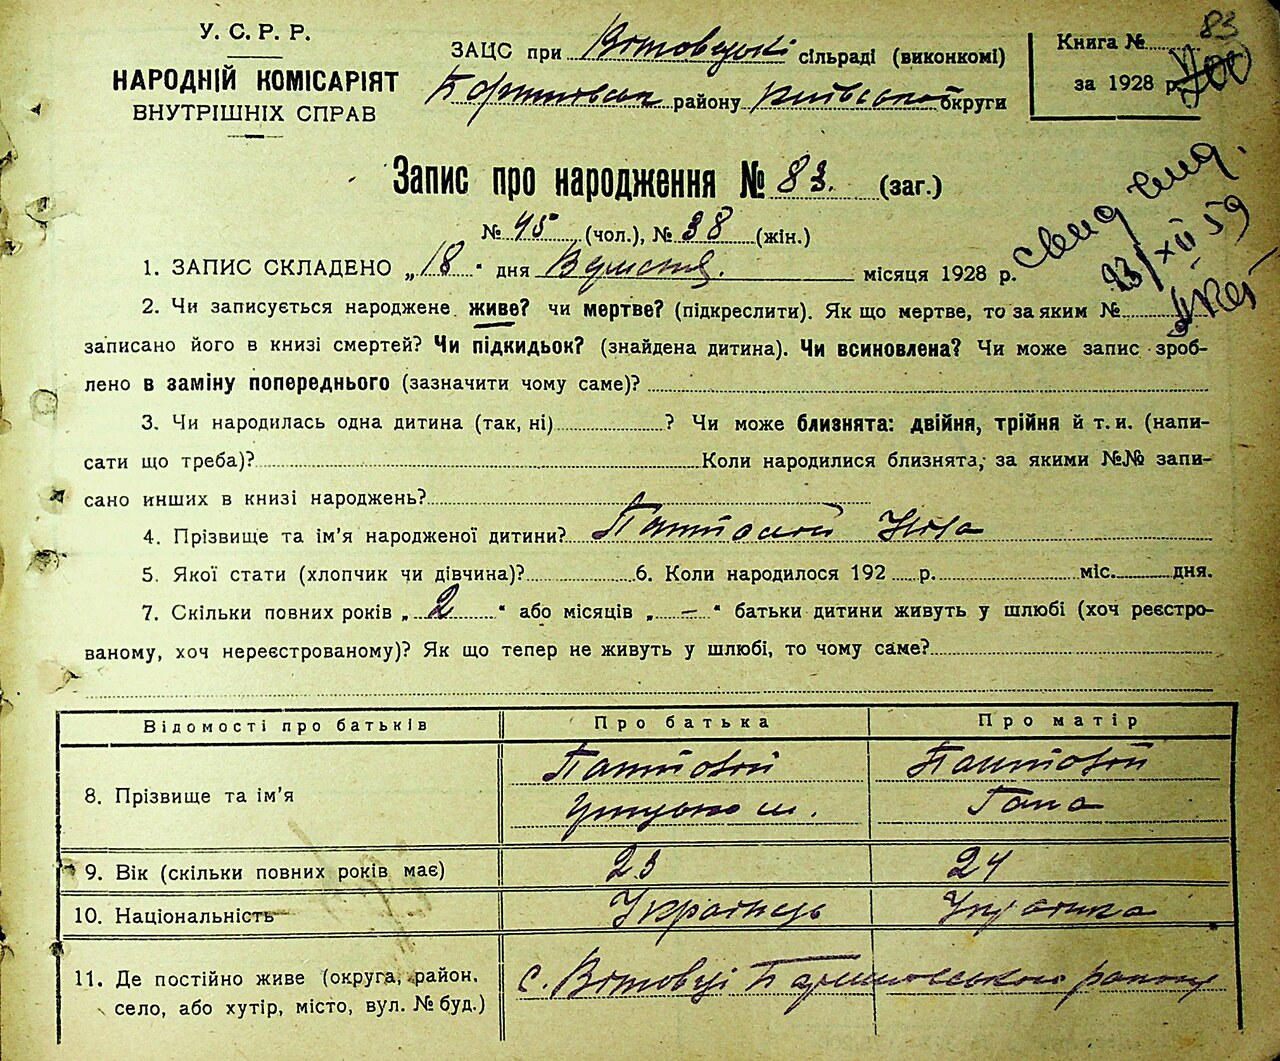 У. С. Р. Р.
НАРОДНІЙ КОМІСАРІЯТ
ВНУТРІШНІХ СПРАВ
ЗАЦС при сільраді (виконкомі)
району Київської округи
Книга № 83
за 1928 р.
Запис про народження № 83. (заг.)
№ 45 (чол.), № 38 (жін.)
1. ЗАПИС СКЛАДЕНО „18" дня Вересня. місяця 1928 р.
23/XII 59
2. Чи записується народжене живе? чи мертве? (підкреслити). Як що мертве, то за яким №
записано його в книзі смертей? Чи підкидьок? (знайдена дитина). Чи всиновлена? Чи може запис зроб-
лено в заміну попереднього (зазначити чому саме)?
3. Чи народилась одна дитина (так, ні)? Чи може близнята: двійня, трійня й т. и. (напи-
сати що треба)? Коли народилися близнята, за якими №№ запи-
сано инших в книзі народжень?
4. Прізвище та ім'я народженої дитини?
5. Якої стати (хлопчик чи дівчина)? 6. Коли народилося 192 р. міс. дня.
7. Скільки повних років „2" або місяців „–" батьки дитини живуть у шлюбі (хоч реєстро-
ваному, хоч нереєстрованому)? Як що тепер не живуть у шлюбі, то чому саме?
Відомості про батьків Про батька Про матір
8. Прізвище та ім'я
Гапа
9. Вік (скільки повних років має) 23 24
10. Національність Українець Українка
11. Де постійно живе (округа, район, с. району
село, або хутір, місто, вул. № буд.)